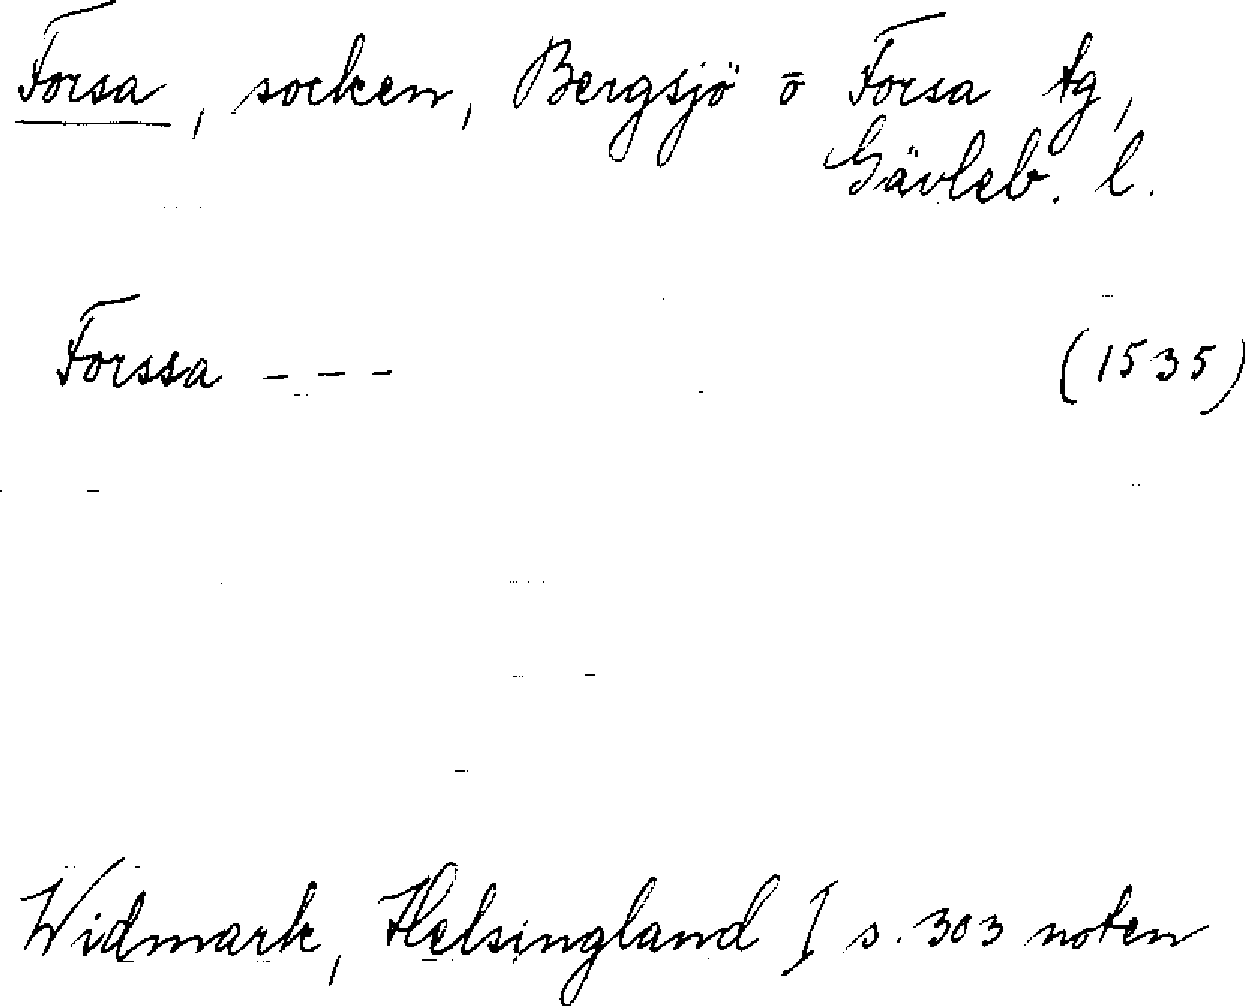 Forsa, socken, Bergsjö o Forsa tg,
Gävleb. l.
Forssa - - - (1535)
Widmark, Helsingland I s. 303 noten